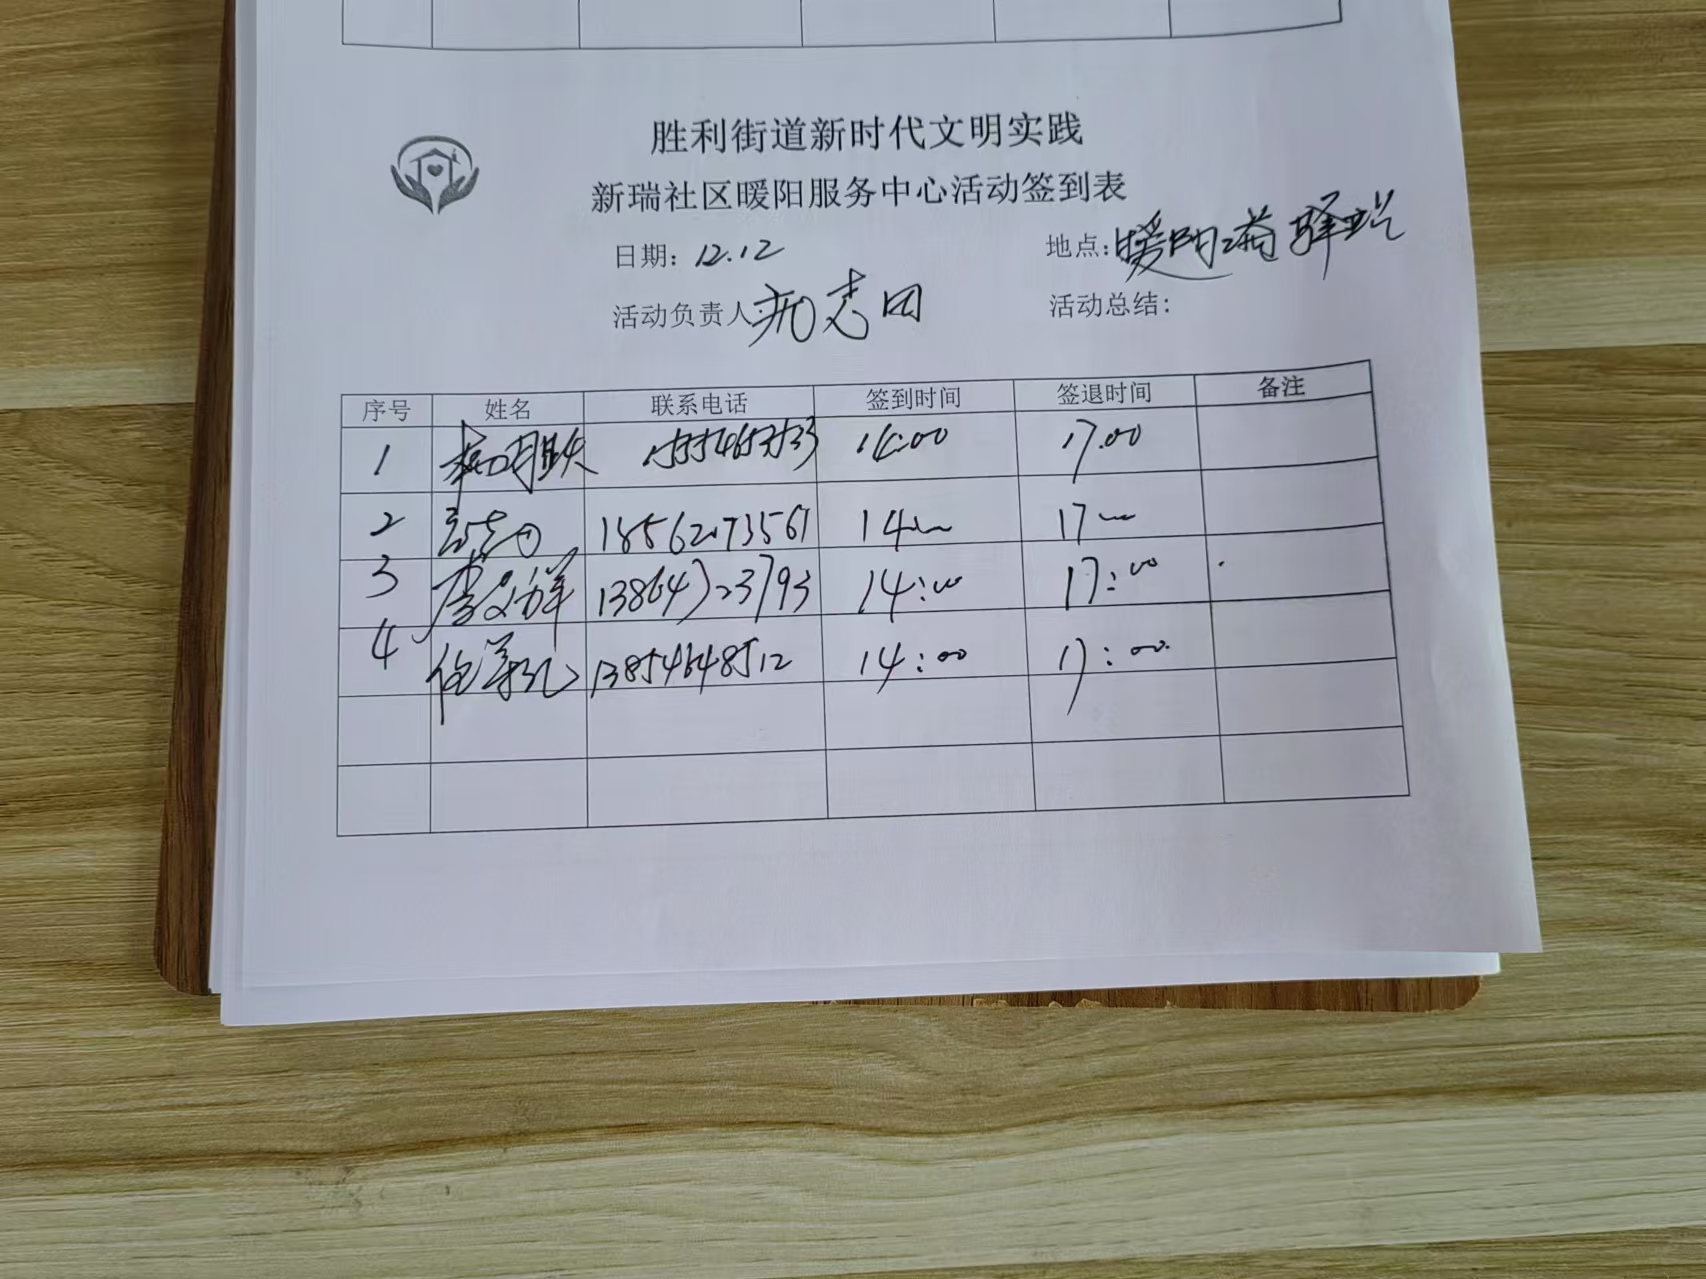 胜利街道新时代文明实践
新瑞社区暖阳服务中心活动签到表
日期: 12.12 地点: 暖阳益驿站
活动负责人 志田 活动总结:
序号 姓名 联系电话 签到时间 签退时间 备注
1 14:00 17.00
2 18562073561 14 17
3 李文祥 13864723793 14:00 17:00
4 13854648512 14:00 17:00